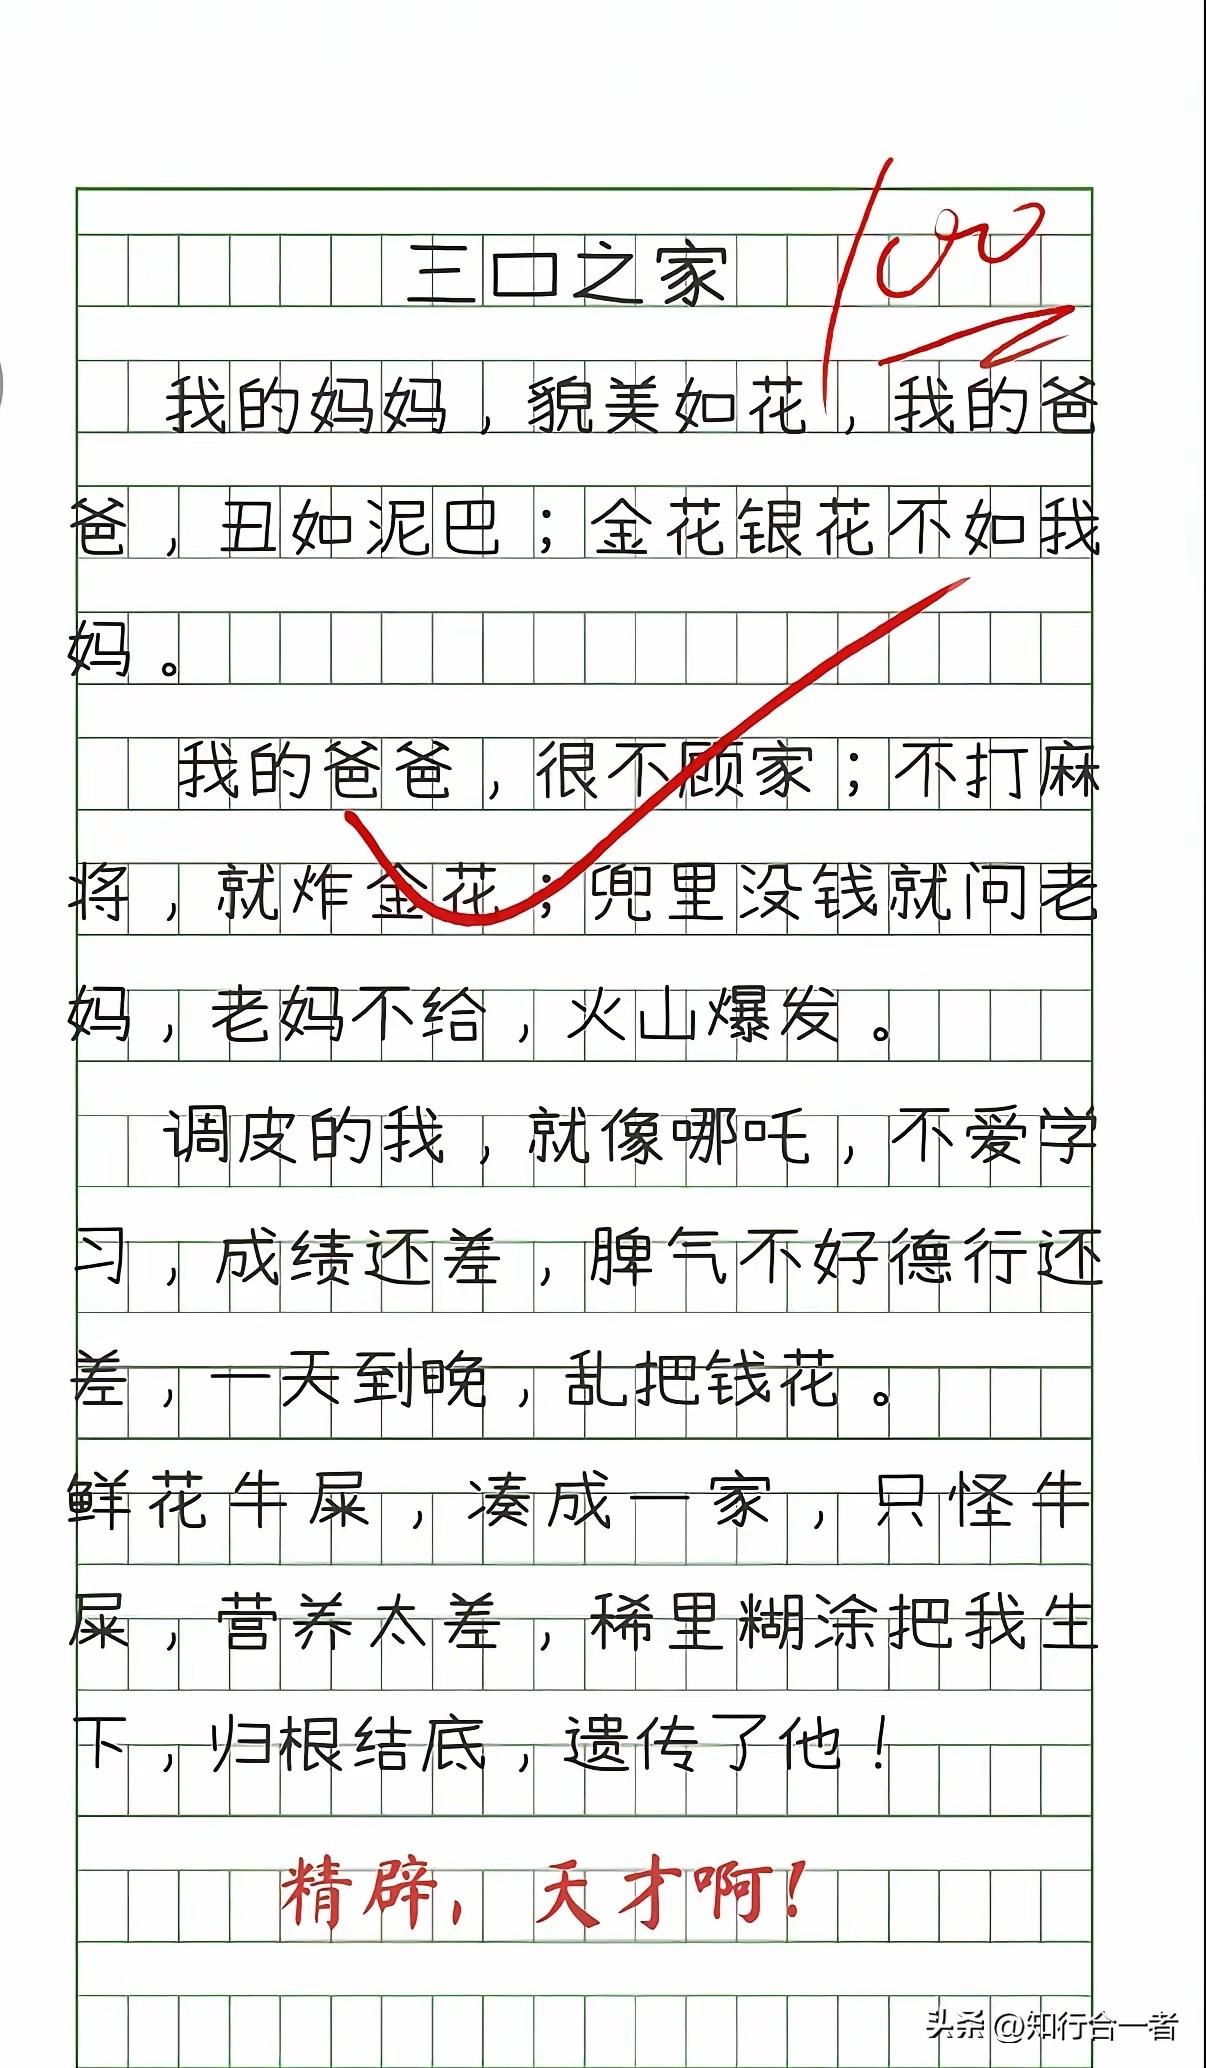 100
三口之家
我的妈妈，貌美如花，我的爸
爸，丑如泥巴；金花银花不如我
妈。
我的爸爸，很不顾家；不打麻
将，就炸金花；兜里没钱就问老
妈，老妈不给，火山爆发。
调皮的我，就像哪吒，不爱学
习，成绩还差，脾气不好德行还
差，一天到晚，乱把钱花。
鲜花牛屎，凑成一家，只怪牛
屎，营养太差，稀里糊涂把我生
下，归根结底，遗传了他！
精辟，天才啊！
头条@知行合一者